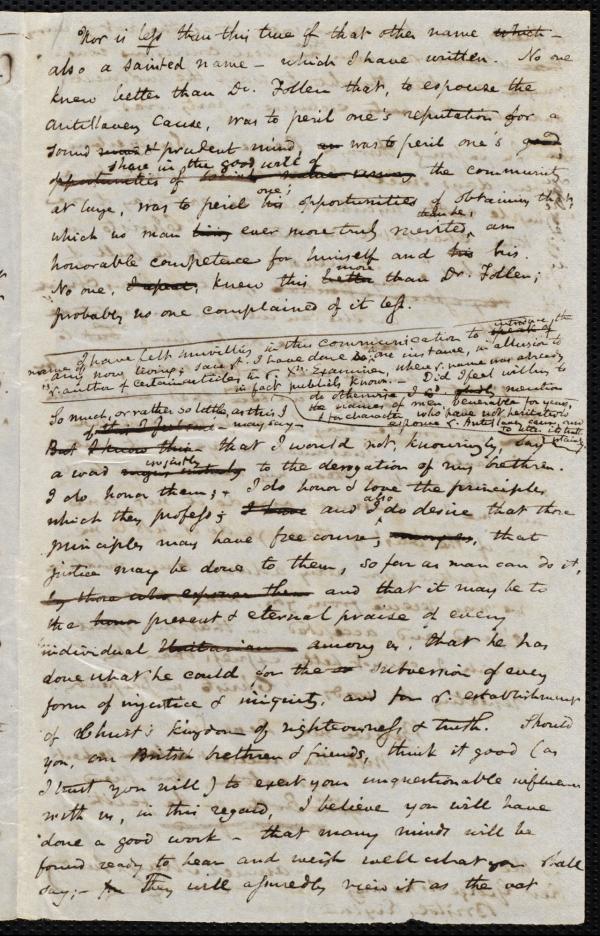 Nor is less than this true of that other name which –
also a sainted name – which I have written. No one
knew better than Dr. Follen that, to espouse the
Antislavery Cause, was to peril one's reputation for a
sound & prudent mind, was to peril one's good
share in the good will of
opportunities of the community
at large, was to peril his one's opportunities of obtaining that,
which no man ever more truly merited than he, an
honorable competence for himself and his his.
No one, I repeat, knew this better more than Dr. Follen;
probably no one complained of it less.
I have felt unwilling in this communication to introduce the
name of any now living; save I have done so in one instance, in allusion to
ye. author of certain articles in ye. Xn. Examiner, whose name was already
in fact publicly known. – Did I feel willing to
do otherwise, I could mention
the names of men venerable for years,
& for character, who have not hesitated to
espouse ye. Antislavery cause, and
So much, or rather so little, as this I
may say –
But I know this – that I would not, knowingly, say
a word unjustly to the derogation of my brethren.
I do honor them; & I do honor & love the principles
which they profess; I have and I also do desire that those
principles may have free course, that
justice may be done to them, so far as man can do it,
by those who espouse them and that it may be to
the honor present & eternal praise of every
individual Unitarian among us, that he has
done what he could, for the subversion of every
form of injustice & iniquity, and for ye. establishment
of Christ's kingdom of righteousness & truth. Should
you, our British brethren & friends, think it good (as
I trust you will) to exert your unquestionable influence
with us, in this regard, I believe you will have
done a good work – that many minds will be
found ready to hear and weigh well what you shall
say; – They will assuredly view it as the act